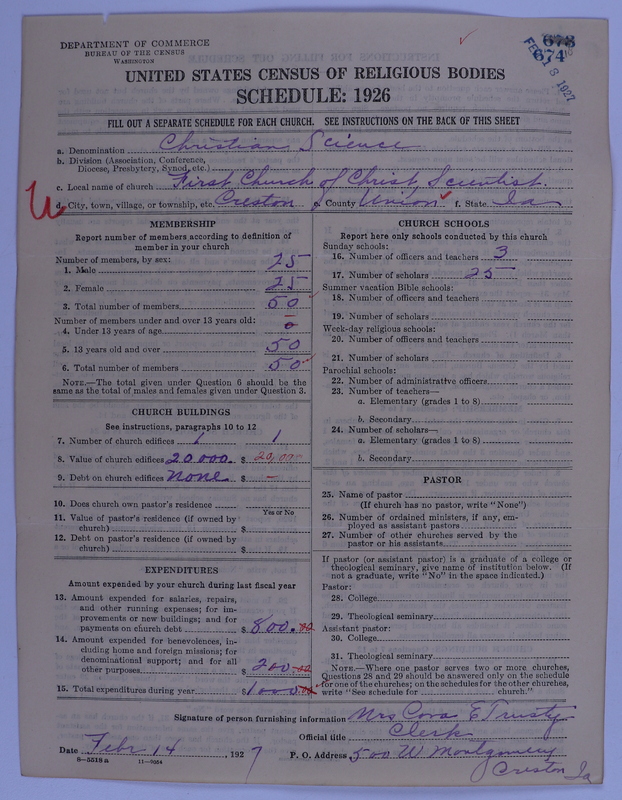 DEPARTMENT OF COMMERCE
BUREAU OF THE CENSUS
WASHINGTON
673
674
FEB 18 1927
UNITED STATES CENSUS OF RELIGIOUS BODIES
SCHEDULE: 1926
FILL OUT A SEPARATE SCHEDULE FOR EACH CHURCH. SEE INSTRUCTIONS ON THE BACK OF THIS SHEET
a. Denomination Christian Science
b. Division (Association, Conference,
Diocese, Presbytery, Synod, etc.)
c. Local name of church First Church of Christ, Scientist.
d. City, town, village, or township, etc. Creston e. County Union f. State Ia
MEMBERSHIP
Report number of members according to definition of
member in your church
Number of members, by sex:
1. Male 25
2. Female 25
3. Total number of members 50
Number of members under and over 13 years old:
4. Under 13 years of age 0
5. 13 years old and over 50
6. Total number of members 50
NOTE.—The total given under Question 6 should be the
same as the total of males and females given under Question 3.
CHURCH BUILDINGS
See instructions, paragraphs 10 to 12
7. Number of church edifices 1 1
8. Value of church edifices 20000. $ 20,000
9. Debt on church edifices None $ —
10. Does church own pastor's residence
Yes or No
11. Value of pastor's residence (if owned by
church) $
12. Debt on pastor's residence (if owned by
church) $
EXPENDITURES
Amount expended by your church during last fiscal year
13. Amount expended for salaries, repairs,
and other running expenses; for im-
provements or new buildings; and for
payments on church debt $ 800.00
14. Amount expended for benevolences, in-
cluding home and foreign missions; for
denominational support; and for all
other purposes $ 200.00
15. Total expenditures during year $ 1000.00
CHURCH SCHOOLS
Report here only schools conducted by this church
Sunday schools:
16. Number of officers and teachers 3
17. Number of scholars 25
Summer vacation Bible schools:
18. Number of officers and teachers
19. Number of scholars
Week-day religious schools:
20. Number of officers and teachers
21. Number of scholars
Parochial schools:
22. Number of administrative officers
23. Number of teachers—
a. Elementary (grades 1 to 8)
b. Secondary
24. Number of scholars—
a. Elementary (grades 1 to 8)
b. Secondary
PASTOR
25. Name of pastor
(If church has no pastor, write "None")
26. Number of ordained ministers, if any, em-
ployed as assistant pastors
27. Number of other churches served by the
pastor or his assistants
If pastor (or assistant pastor) is a graduate of a college or
theological seminary, give name of institution below. (If
not a graduate, write "No" in the space indicated.)
Pastor:
28. College
29. Theological seminary
Assistant pastor:
30. College
31. Theological seminary
NOTE.—Where one pastor serves two or more churches,
Questions 28 and 29 should be answered only on the schedule
for one of the churches; on the schedules for the other churches,
write "See schedule for church."
Signature of person furnishing information Mrs Cora E Trusty
Official title Clerk
Date Febr 14 1927 P. O. Address 500 W Montgomery
Creston Ia
8—5518 a 11—9554